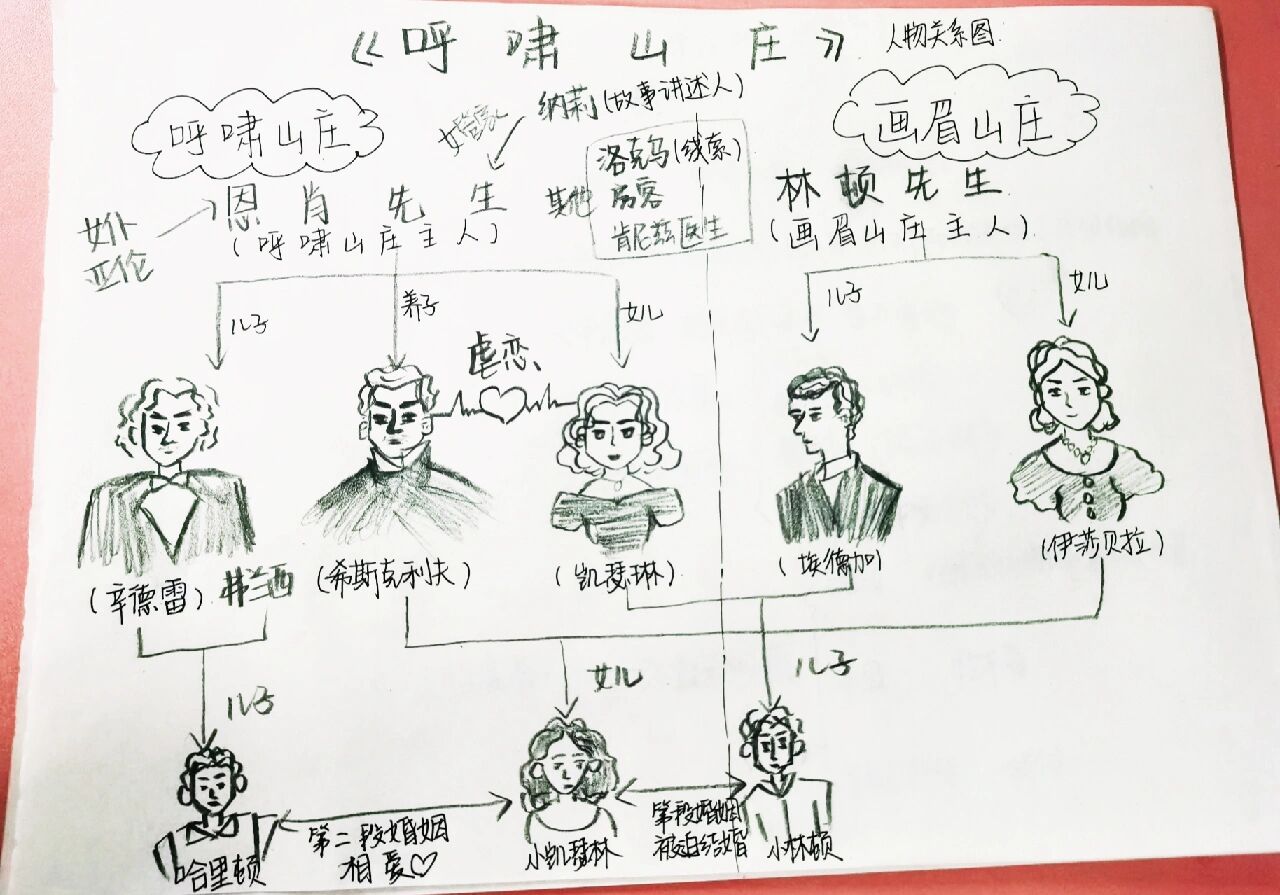 《呼啸山庄》 人物关系图:
呼啸山庄
女管家
纳莉(故事讲述人)
画眉山庄
恩肖先生
(呼啸山庄主人)
女仆
亚伦
其他
洛克乌(线索)
房客
肯尼兹医生
林顿先生
(画眉山庄主人)
儿子
养子
女儿
儿子
女儿
虐恋、
(辛德雷)
弗兰西
(希斯克利夫)
(凯瑟琳)
(埃德加)
(伊莎贝拉)
儿子
女儿
儿子
哈里顿
第二段婚姻
相爱♡
小凯瑟林
第段婚姻
被迫结婚
小林顿